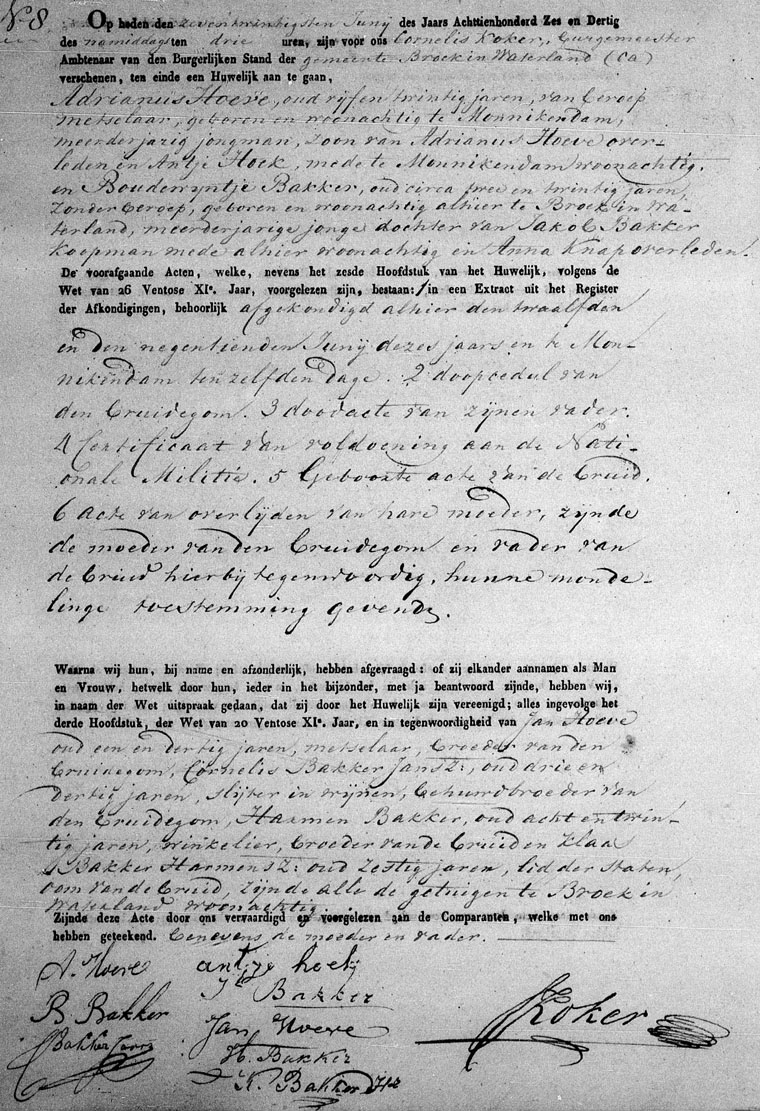 N.8
Op heden den zeven twintigsten Junij des Jaars Achttienhonderd Zes en Dertig
des namiddags ten drie uren, zijn voor ons Cornelis Koker, Burgemeester
Ambtenaar van den Burgerlijken Stand der gemeente Broek in Waterland (Ca)
verschenen, ten einde een Huwelijk aan te gaan,
Adrianus Hoeve, oud vijf en twintig jaren, van beroep
metselaar, geboren en woonachtig te Monnikendam,
meerderjarig jongman, zoon van Adrianus Hoeve over-
leden en Antje Hoek, mede te Monnikendam woonachtig.
en Boudewyntje Bakker, oud circa twee en twintig jaren,
zonder beroep, geboren en woonachtig alhier te Broek in Wa-
terland, meerderjarige jonge dochter van Jakob Bakker
koopman mede alhier woonachtig en Anna Knap overleden.
De voorafgaande Acten, welke, nevens het zesde Hoofdstuk van het Huwelijk, volgens de
Wet van 26 Ventose XIe. Jaar, voorgelezen zijn, bestaan: 1 in een Extract uit het Register
der Afkondigingen, behoorlijk afgekondigd alhier den twaalfden
en den negentienden Junij dezes jaars en te Mon-
nikendam ten zelfden dage. 2 doopcedul van
den Bruidegom. 3 doodacte van zijnen vader.
4 Certificaat van voldoening aan de Nati-
onale Militie. 5 Geboorte acte van de Bruid.
6 acte van overlijden van hare moeder, zijnde
de moeder van den Bruidegom en vader van
de Bruid hierbij tegenwoordig, hunne monde-
linge toestemming gevende.
Waarna wij hun, bij name en afzonderlijk, hebben afgevraagd: of zij elkander aannamen als Man
en Vrouw, hetwelk door hun, ieder in het bijzonder, met ja beantwoord zijnde, hebben wij,
in naam der Wet uitspraak gedaan, dat zij door het Huwelijk zijn vereenigd; alles ingevolge het
derde Hoofdstuk, der Wet van 20 Ventose XIe. Jaar, en in tegenwoordigheid van Jan Hoeve
oud een en dertig jaren, metselaar, broeder van den
Bruidegom, Cornelis Bakker Jansz:, oud drie en
dertig jaren, slijter in wijnen, behuwdbroeder van
den Bruidegom, Harmen Bakker, oud acht en twin-
tig jaren, winkelier, broeder van de Bruid en Klaas
Bakker Harmensz: oud zestig jaren, lid der Staten,
oom van de Bruid, zijnde alle de getuigen te Broek in
Waterland woonachtig.
Zijnde deze Acte door ons vervaardigd en voorgelezen aan de Comparanten, welke met ons
hebben geteekend. benevens de moeder en vader.
A. Hoeve antje hoek
B Bakker Jb Bakker
Bakker Jansz Jan Hoeve
H. Bakker
K. Bakker Hsz
CKoker